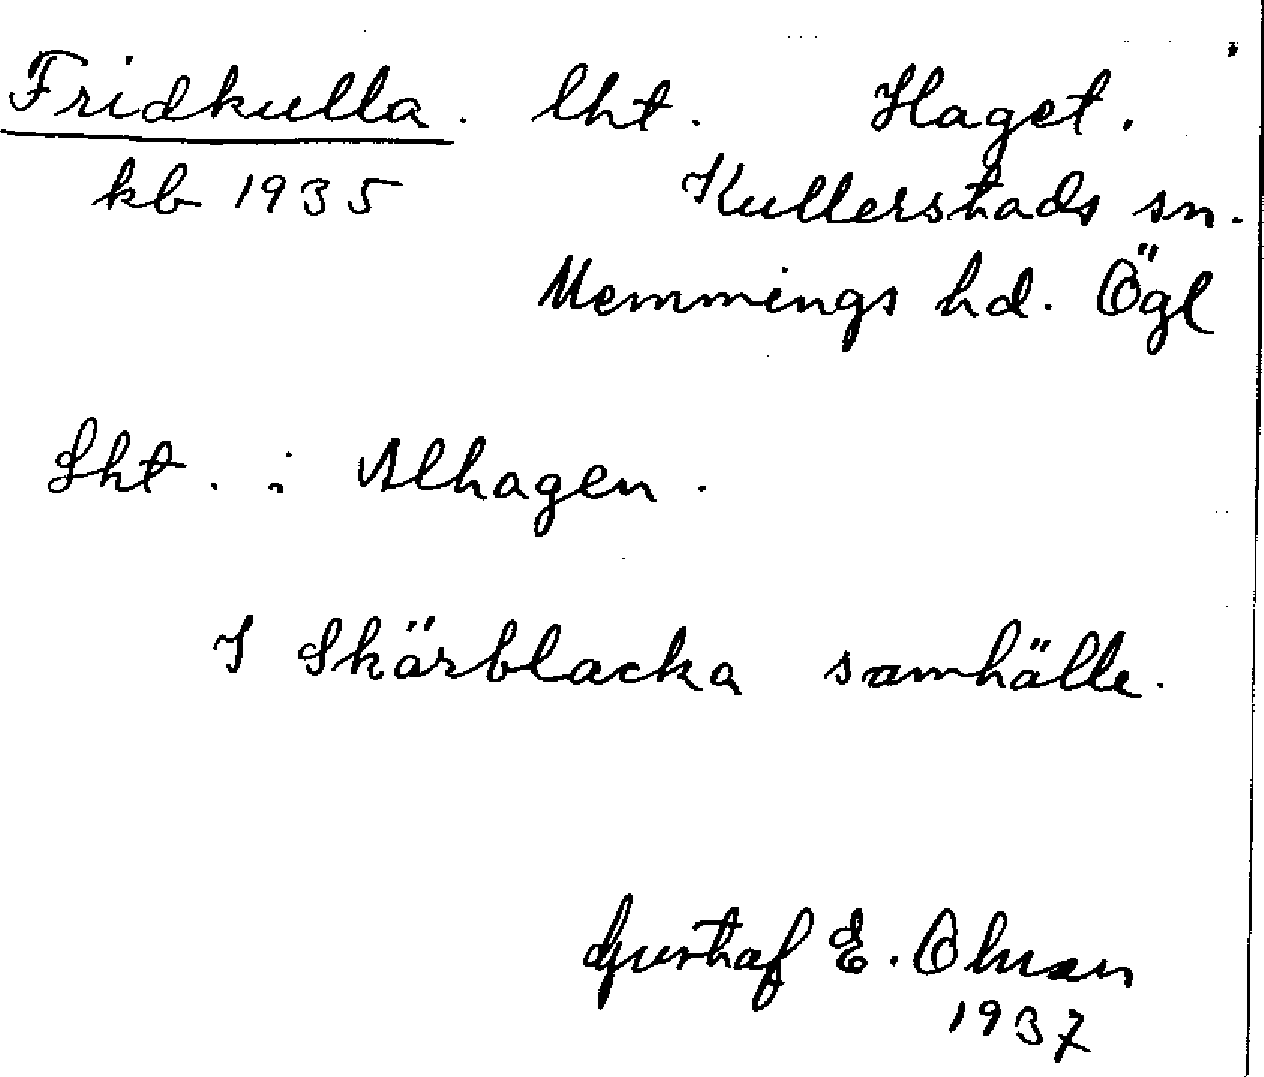 Fridkulla. lht. Haget.
kb 1935 Kullerstads sn.
Memmings hd. Ögl
Lht. i Alhagen.
I Skärblacka samhälle.
Gustaf E. Olsson
1937